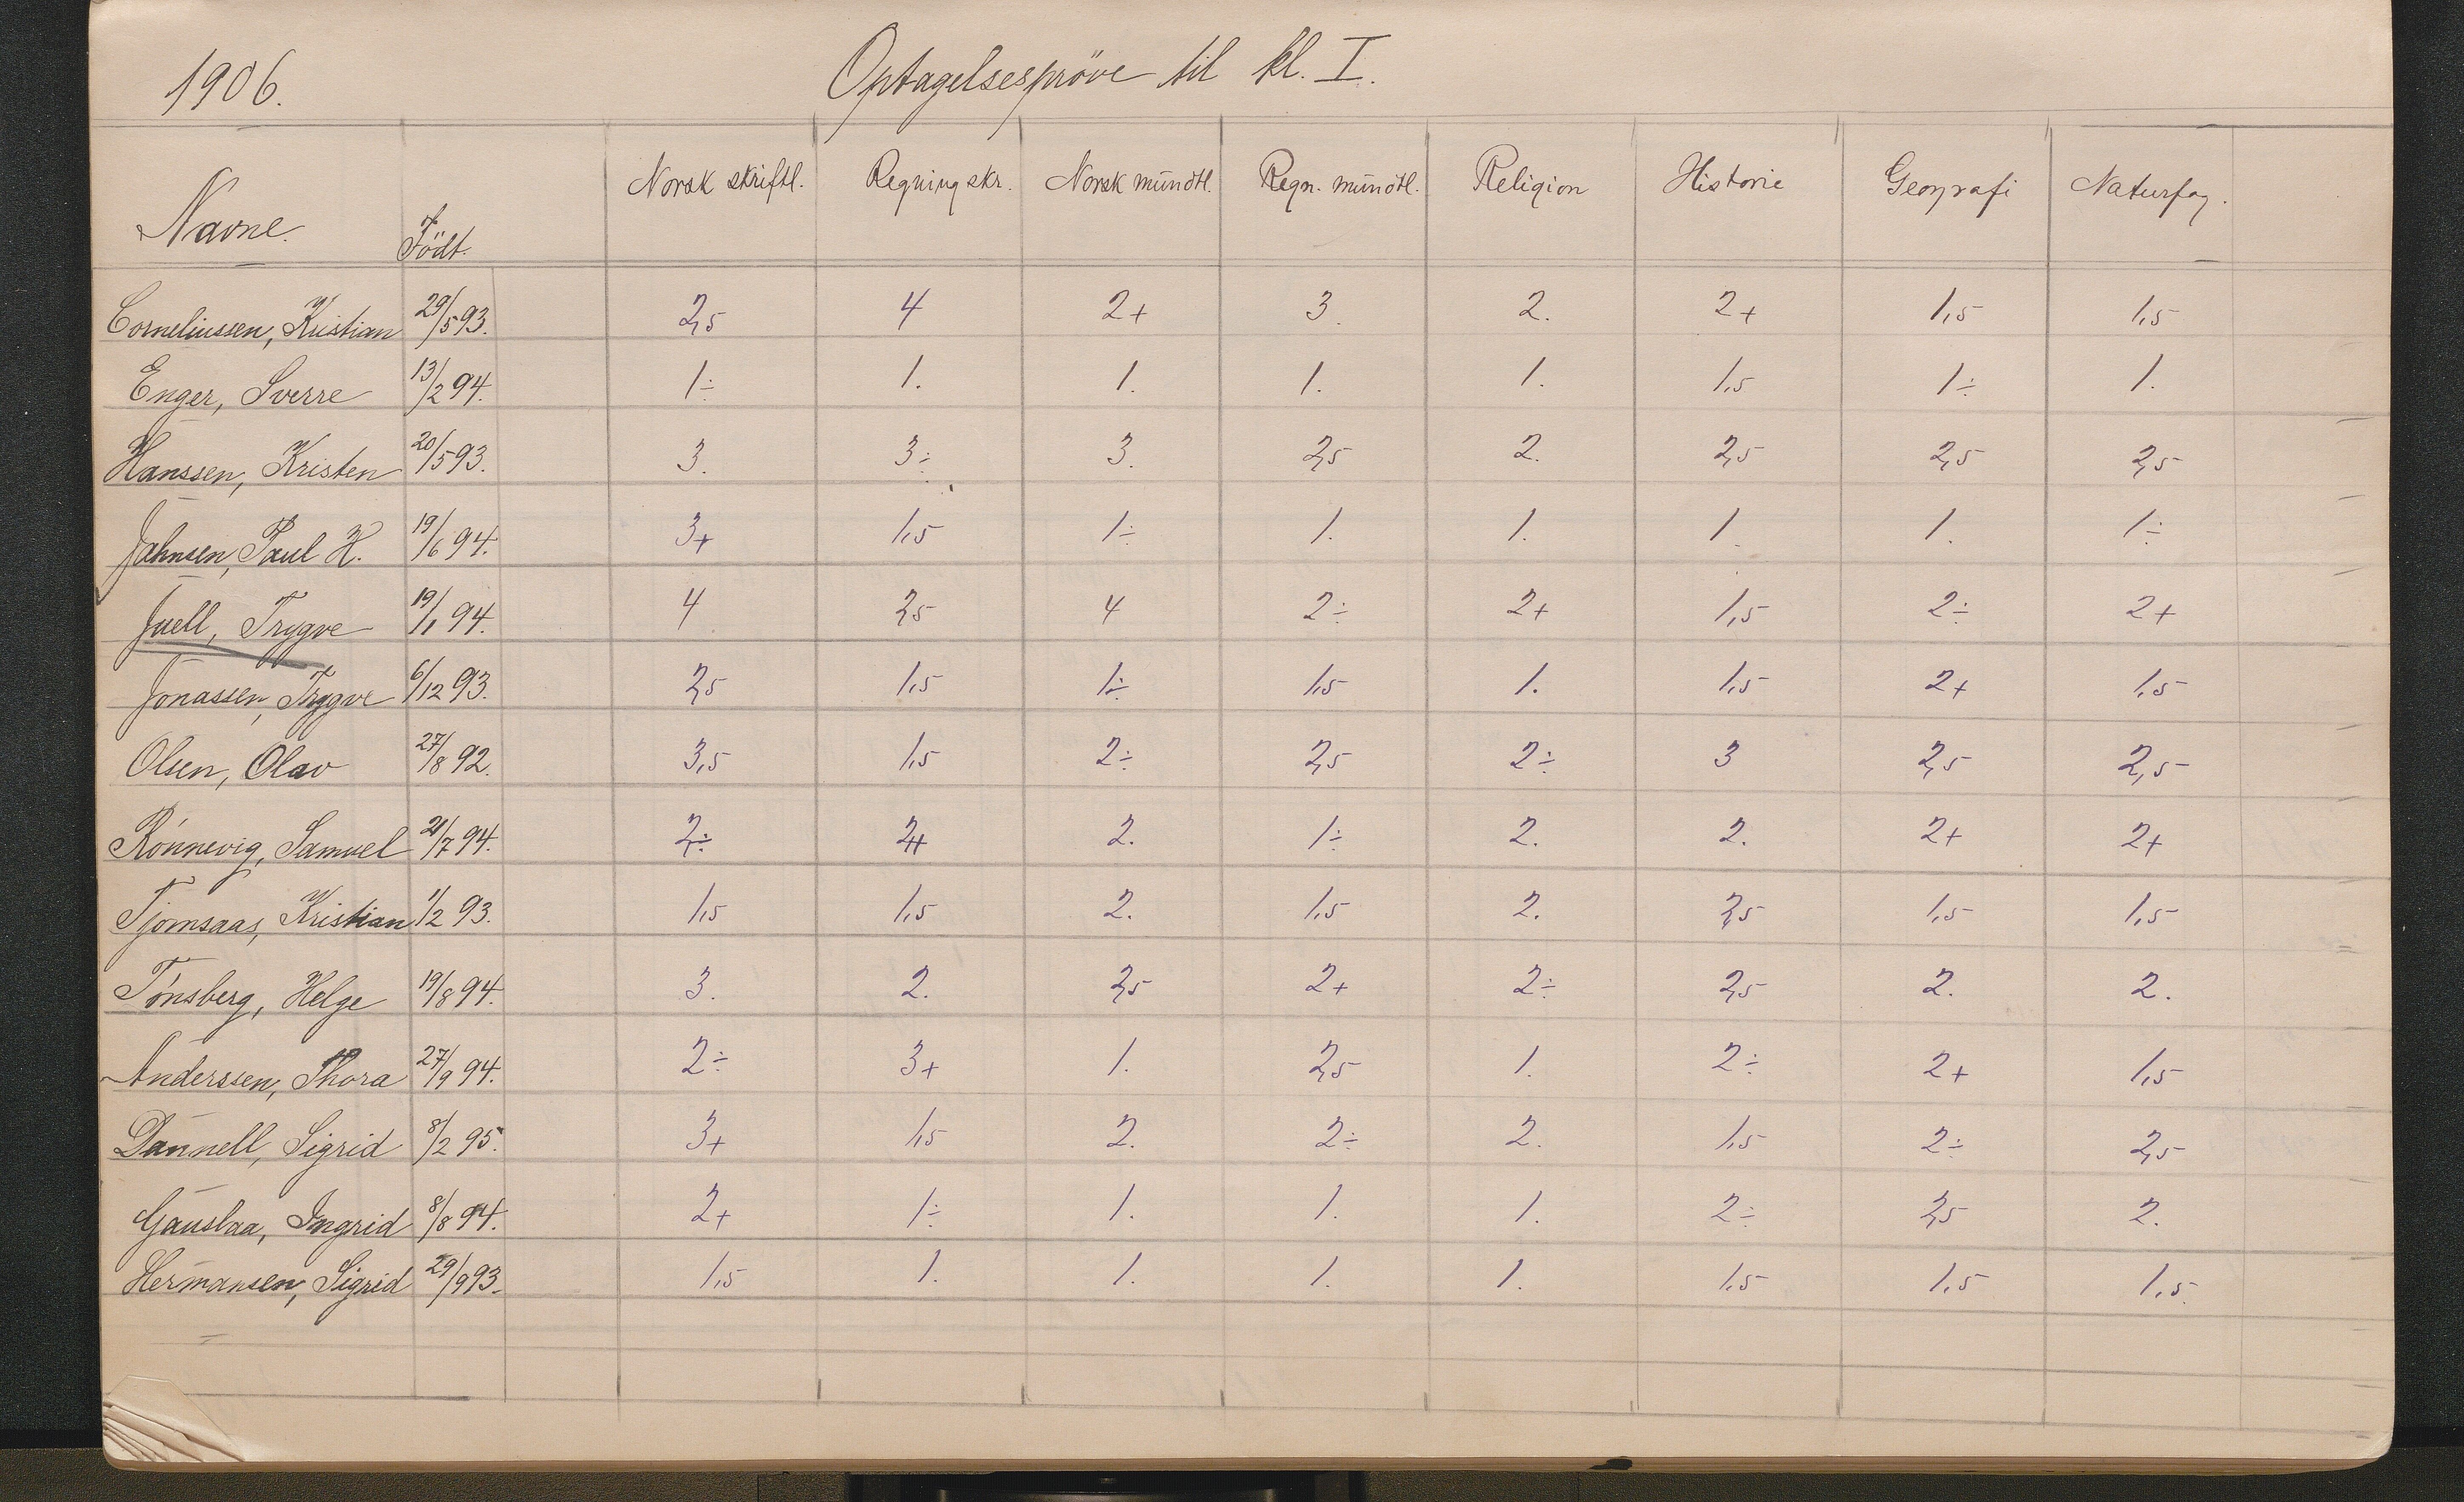 1906. Optagelsespröve til kl. I.
Navne. Födt. Norsk skriftl. Regning skr. Norsk mündtl. Regn. mündtl. Religion Historie Geografi Naturfag.
Corneliussen, Kristian 29/5 93. 2,5 4 2+ 3. 2. 2+ 1,5 1,5
Enger, Sverre 13/2 94. 1÷ 1. 1. 1. 1. 1,5 1÷ 1.
Hanssen, Kristen 20/5 93. 3. 3÷ 3. 2,5 2. 2,5 2,5 2,5
Jahnsen, Paul H. 19/6 94. 3+ 1,5 1÷ 1. 1. 1. 1. 1÷
Juell, Trygve 19/1 94. 4 2,5 4 2÷ 2+ 1,5 2÷ 2+
Jonassen, Trygve 6/12 93. 2,5 1,5 1÷ 1,5 1. 1,5 2+ 1,5
Olsen, Olav 27/8 92. 3,5 1,5 2÷ 2,5 2÷ 3 2,5 2,5
Rönnevig, Samuel /7 94. 2÷ 2+ 2. 1÷ 2. 2. 2+ 2+
Tjomsaas, Kristian 1/2 93. 1,5 1,5 2. 1,5 2. 2,5 1,5 1,5
Tönsberg, Helge 19/8 94. 3. 2. 2,5 2+ 2÷ 2,5 2. 2.
Anderssen, Thora 27/9 94. 2÷ 3+ 1. 2,5 1. 2÷ 2+ 1,5
Dannell, Sigrid 8/2 95. 3+ 1,5 2. 2÷ 2. 1,5 2÷ 2,5
Gauslaa, Ingrid 8/8 94. 2+ 1÷ 1. 1. 1. 2÷ 2,5 2.
Hermansen, Sigrid 29/9 93. 1,5 1. 1. 1. 1. 1,5 1,5 1,5.